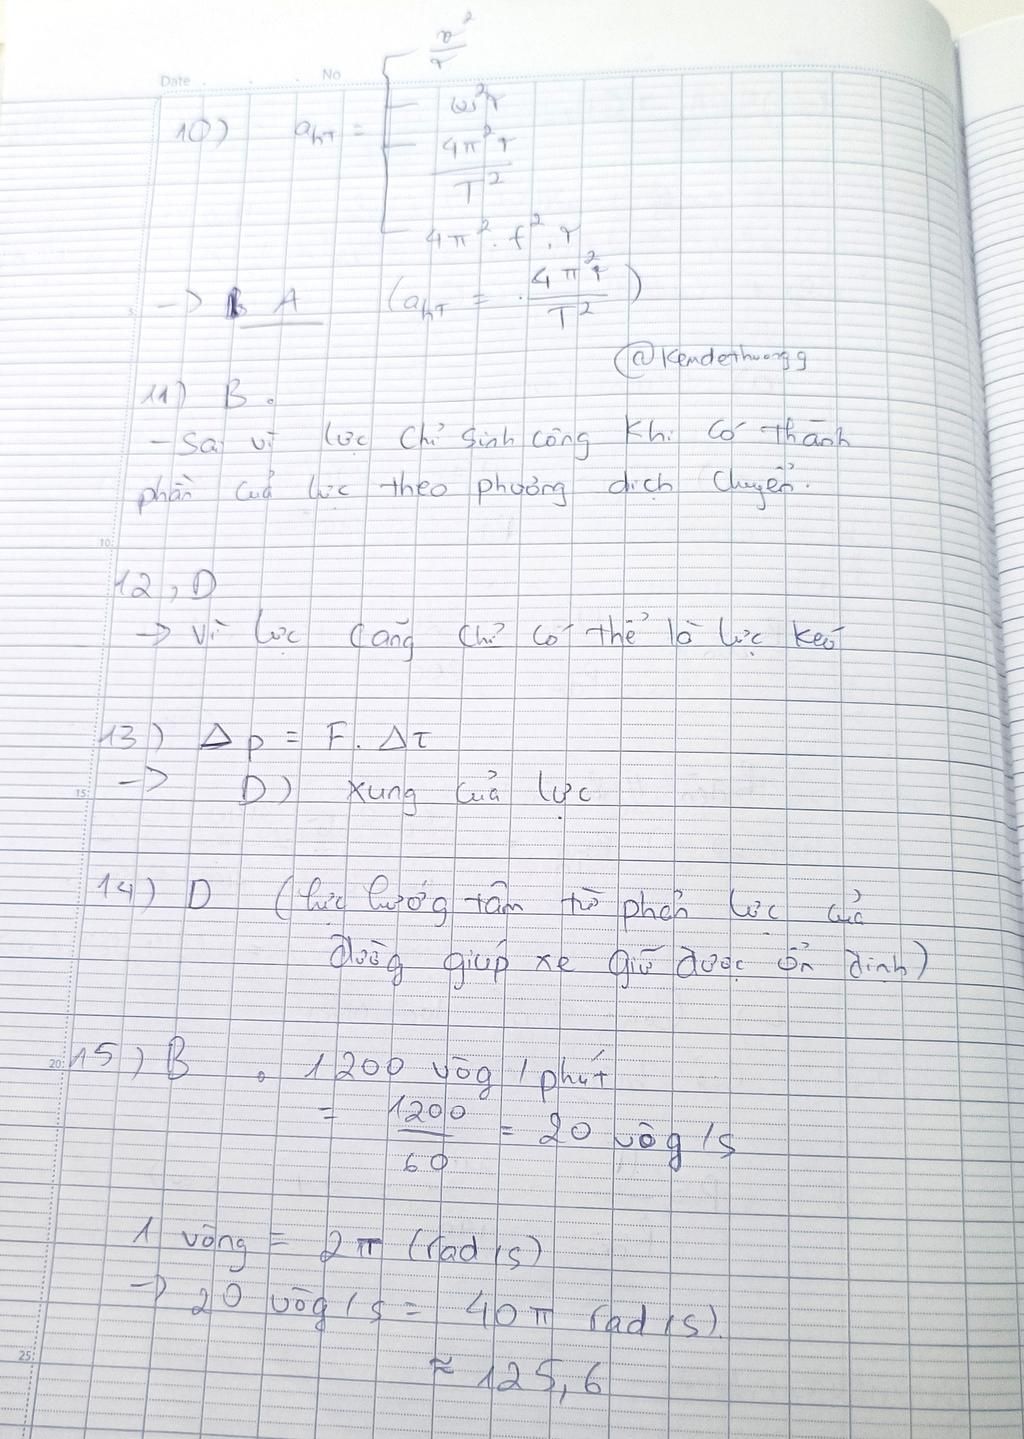 Date . . . No
10) a_hT = v²/r
ω²r
4π²r/T²
4π² . f² . r
-> A (a_hT = 4π²r/T²)
@Kemdethuongg
11) B.
- Sai vì lực chỉ sinh công khi có thành
phần của lực theo phương dịch chuyển.
10
12, D
-> Vì lực căng chỉ có thể là lực kéo
13) Δp = F. Δt
15
-> D) xung của lực
14) D (lực hướng tâm từ phản lực của
đường giúp xe giữ được ổn định)
20
15) B . 1200 vòg / phút
= 1200/60 = 20 vòg/s
1 vòng = 2π (rad/s)
-> 20 vòg/s = 40π rad/s)
25
≈ 125,6